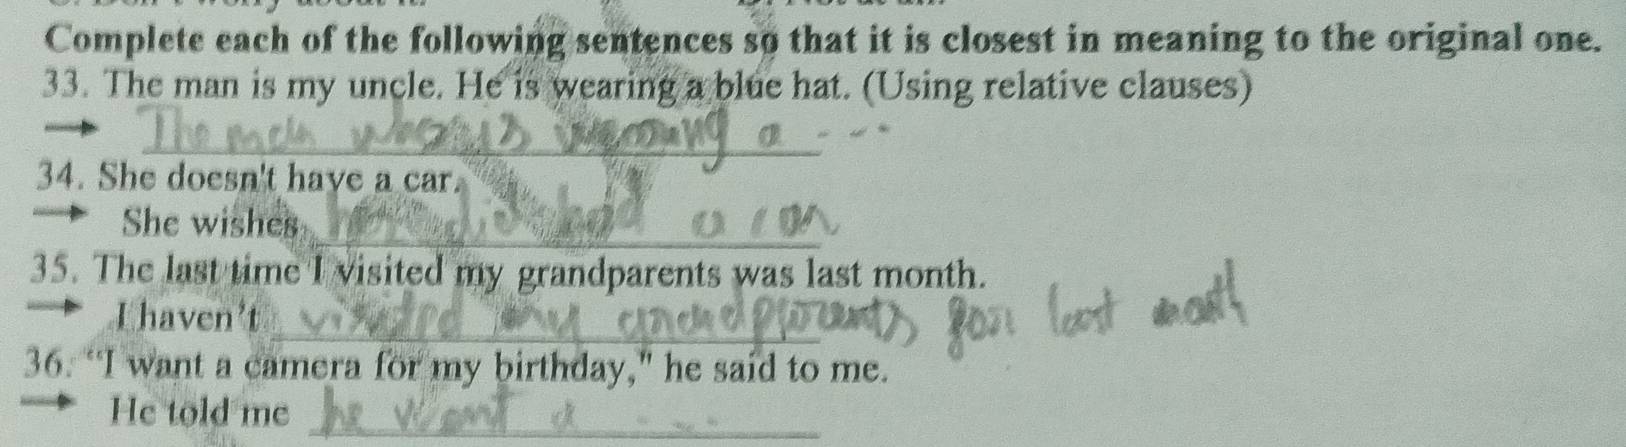 Complete each of the following sentences so that it is closest in meaning to the original one.
33. The man is my uncle. He is wearing a blue hat. (Using relative clauses)
The man who is wearing a ...
34. She doesn't have a car.
She wishes had a car
35. The last time I visited my grandparents was last month.
I haven't visited my grandparents last month
36. "I want a camera for my birthday," he said to me.
He told me he want a ...